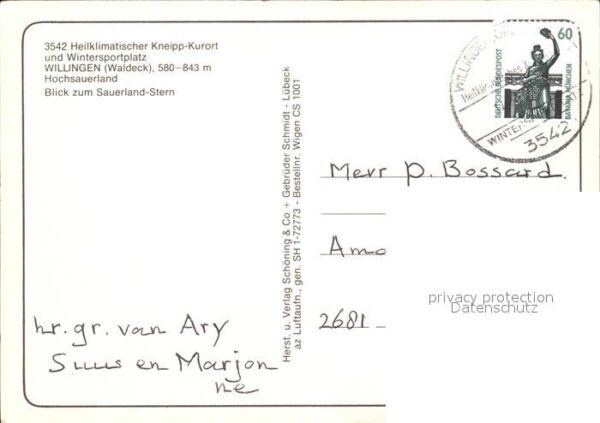 3542 Heilklimatischer Kneipp-Kurort
und Wintersportplatz
WILLINGEN (Waldeck), 580–843 m
Hochsauerland
Blick zum Sauerland-Stern
WILLINGEN
Heilklim.
WINTERSP
3542
60
DEUTSCHE BUNDESPOST
BAVARIA MÜNCHEN
Herst. u. Verlag Schöning & Co + Gebrüder Schmidt - Lübeck
az Luftaufn., gen. SH 1-72773 - Bestellnr. Wigen CS 1001
Mevr P. Bossard.
Amo
2681
privacy protection
Datenschutz
hr. gr. van Ary
Suus en Marjon
ne